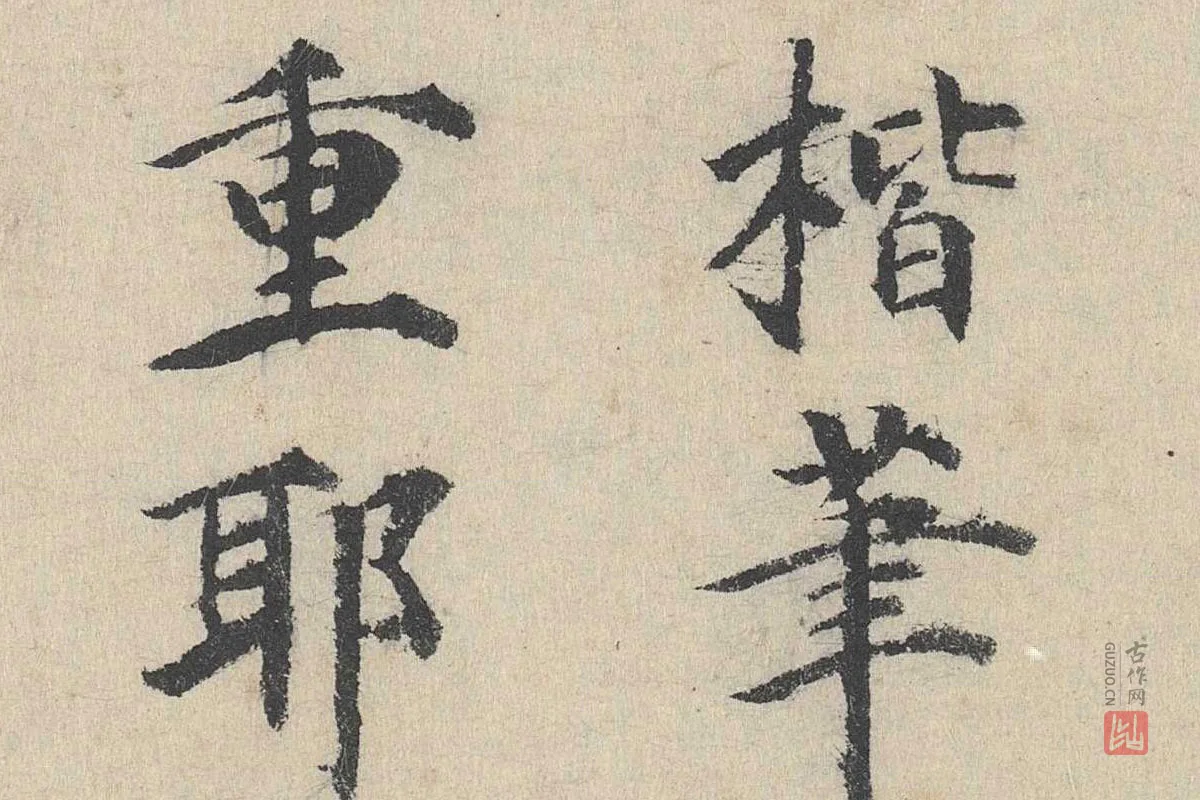 楷筆
重耶
古作网
GUZUO.CN